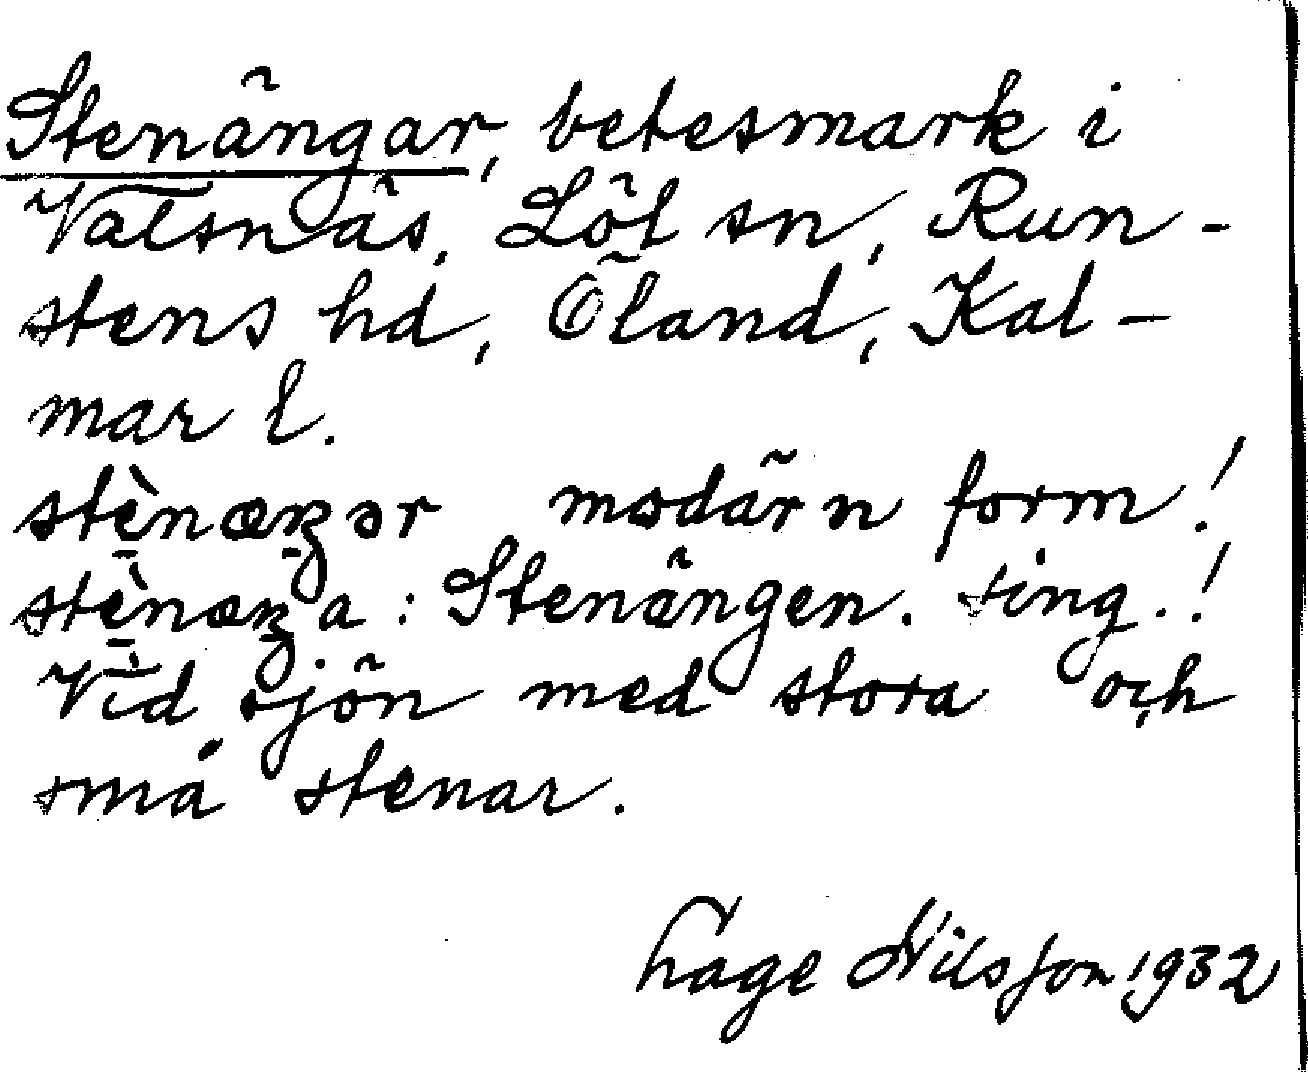 Stenängar, betesmark i
Valsnäs, Löt sn, Run-
stens hd, Öland, Kal-
mar l.
stè̱næŋər modärn form!
stè̱næŋa: Stenängen. sing.!
Vid sjön med stora och
små stenar.
Hage Nilsson 1932